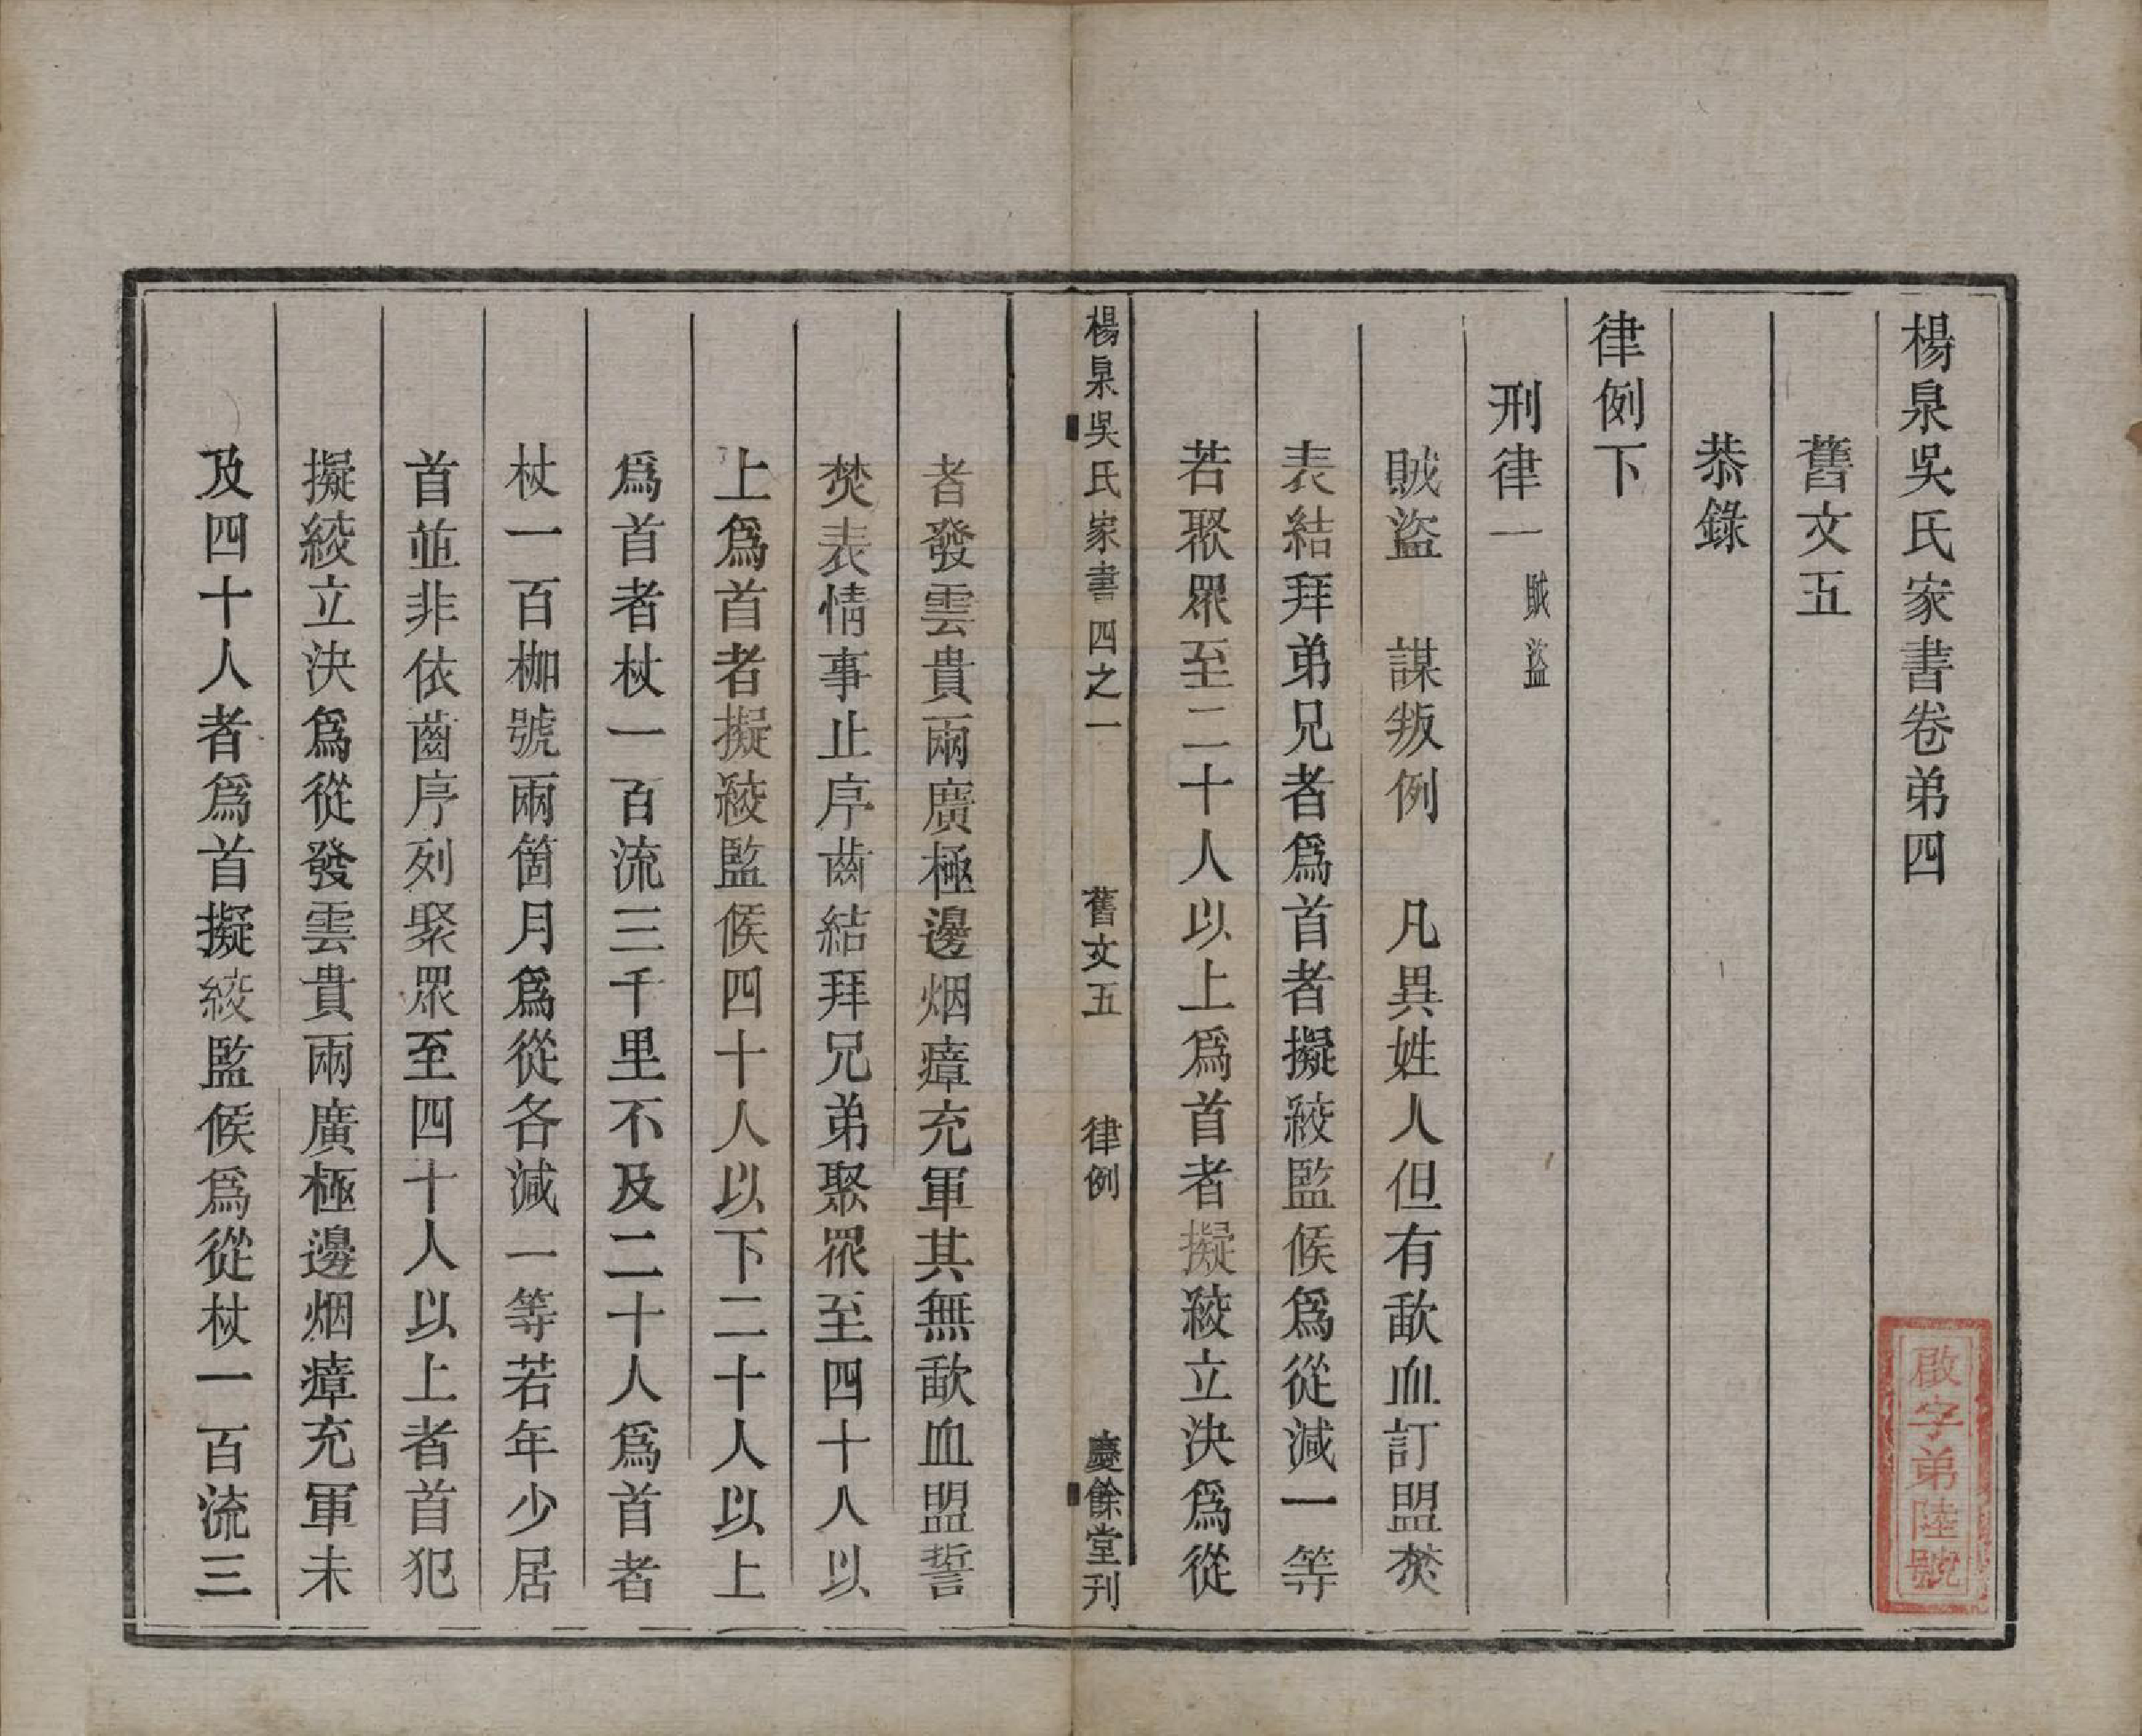 楊泉吳氏家書卷弟四
舊文五
恭錄
律例下
刑律一賊盜
賊盜　謀叛例　凡異姓人但有歃血訂盟焚
表結拜弟兄者爲首者擬絞監候爲從減一等
若聚眾至二十人以上爲首者擬絞立決爲從
楊泉吳氏家書四之一　舊文五　律例　慶餘堂刊
者發雲貴兩廣極邊烟瘴充軍其無歃血盟誓
焚表情事止序齒結拜兄弟聚眾至四十人以
上爲首者擬絞監候四十人以下二十人以上
爲首者杖一百流三千里不及二十人爲首者
杖一百枷號兩箇月爲從各減一等若年少居
首並非依齒序列聚眾至四十人以上者首犯
擬絞立決爲從發雲貴兩廣極邊烟瘴充軍未
及四十人者爲首擬絞監候爲從杖一百流三
啟字弟陸號